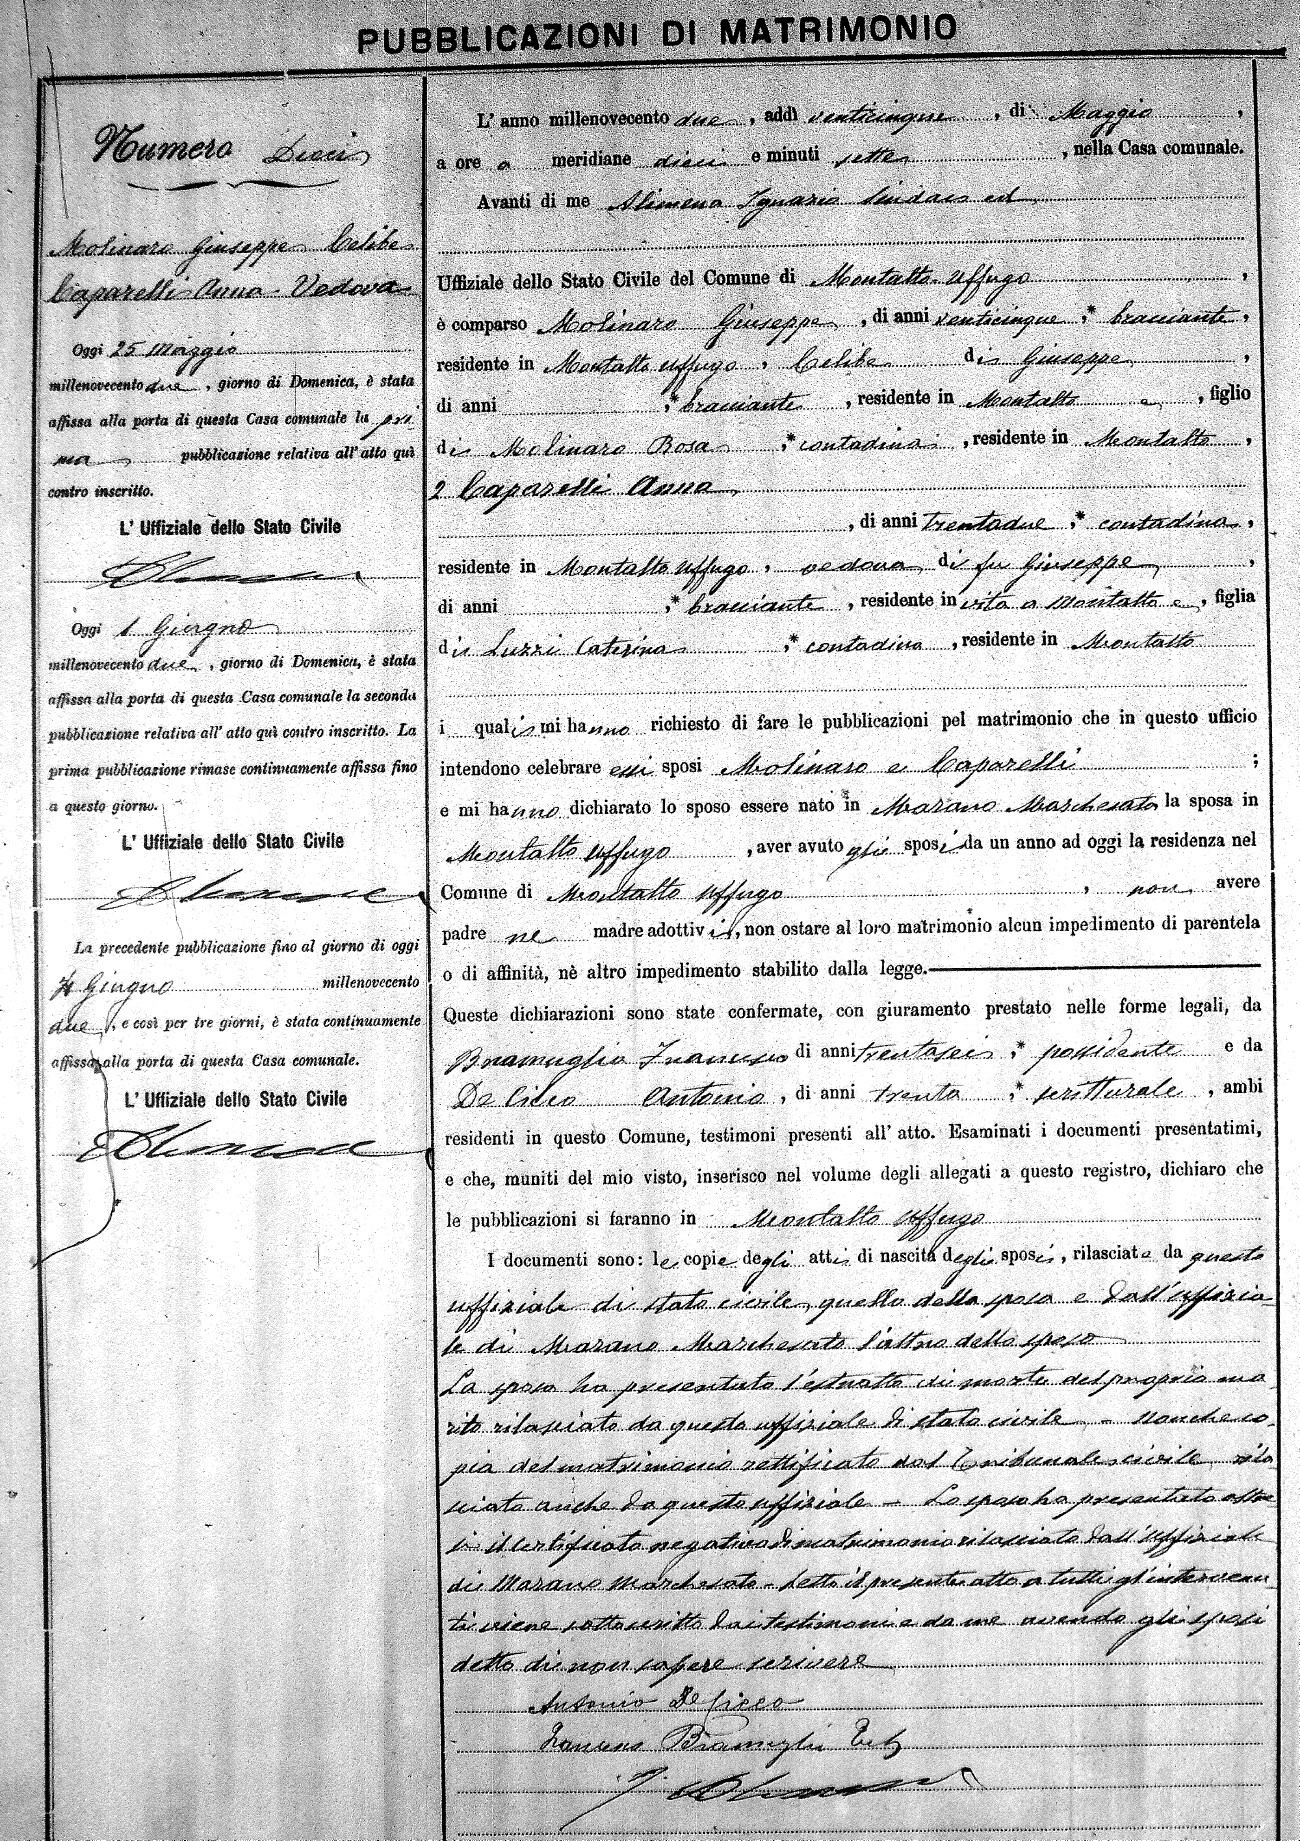 PUBBLICAZIONI DI MATRIMONIO
Numero Dieci
Molinaro Giuseppe Celibe
Caparelli Anna - Vedova
Oggi 25 Maggio
millenovecento due, giorno di Domenica, è stata
affissa alla porta di questa Casa comunale la pri
ma pubblicazione relativa all' atto quì
contro inscritto.
L' Uffiziale dello Stato Civile
Oggi 1 Giugno
millenovecento due, giorno di Domenica, è stata
affissa alla porta di questa Casa comunale la seconda
pubblicazione relativa all' atto quì contro inscritto. La
prima pubblicazione rimase continuamente affissa fino
a questo giorno.
L' Uffiziale dello Stato Civile
La precedente pubblicazione fino al giorno di oggi
4 Giugno millenovecento
due, e così per tre giorni, è stata continuamente
affissa alla porta di questa Casa comunale.
L' Uffiziale dello Stato Civile
L' anno millenovecento due, addì venticinque, di Maggio,
a ore a meridiane dieci e minuti sette, nella Casa comunale.
Avanti di me Alimena Ignazio Sindaco ed
Uffiziale dello Stato Civile del Comune di Montalto Uffugo,
è comparso Molinaro Giuseppe, di anni venticinque,* bracciante,
residente in Montalto Uffugo, Celibe di Giuseppe,
di anni ,* bracciante, residente in Montalto e, figlio
di Molinaro Rosa ,* contadina, residente in Montalto,
2 Caparelli Anna
, di anni trentadue,* contadina,
residente in Montalto Uffugo, vedova di fu Giuseppe,
di anni ,* bracciante, residente in vita a Montalto e, figlia
di Luzzi Caterina ,* contadina, residente in Montalto
i quali mi hanno richiesto di fare le pubblicazioni pel matrimonio che in questo ufficio
intendono celebrare essi sposi Molinaro e Caparelli ;
e mi hanno dichiarato lo sposo essere nato in Marano Marchesato la sposa in
Montalto Uffugo, aver avuto gli sposi da un anno ad oggi la residenza nel
Comune di Montalto Uffugo, non avere
padre ne madre adottivi, non ostare al loro matrimonio alcun impedimento di parentela
o di affinità, nè altro impedimento stabilito dalla legge.
Queste dichiarazioni sono state confermate, con giuramento prestato nelle forme legali, da
Bramuglia Francesco di anni trentasei,* possidente e da
De Cicco Antonio, di anni trenta ,* scritturale, ambi
residenti in questo Comune, testimoni presenti all' atto. Esaminati i documenti presentatimi,
e che, muniti del mio visto, inserisco nel volume degli allegati a questo registro, dichiaro che
le pubblicazioni si faranno in Montalto Uffugo
I documenti sono: le copie degli atti di nascita degli sposi, rilasciate da questo
uffiziale di stato civile, quello della sposa e dall'uffizia-
le di Marano Marchesato l'altro dello sposo
La sposa ha presentato l'estratto di morte del proprio ma-
rito rilasciato da questo uffiziale di stato civile - nonche co-
pia del matrimonio rettificato dal Tribunale civile rila
sciato anche da questo uffiziale - Lo sposo ha presentato altre
si il certificato negativo di matrimonio rilasciato dall'uffiziale
di Marano Marchesato - Letto il presente atto a tutti gl'interven-
ti viene sottoscritto dai testimoni e da me avendo gli sposi
detto di non sapere scrivere
Antonio De Cicco
Francesco Bramuglia